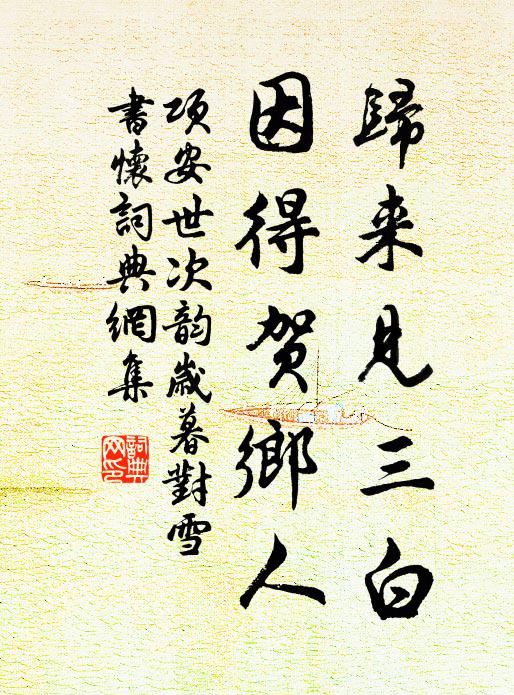 歸来見三白
因得賀鄉人
項安世次韵歲暮對雪
書懷詞典網集
詞典
网印